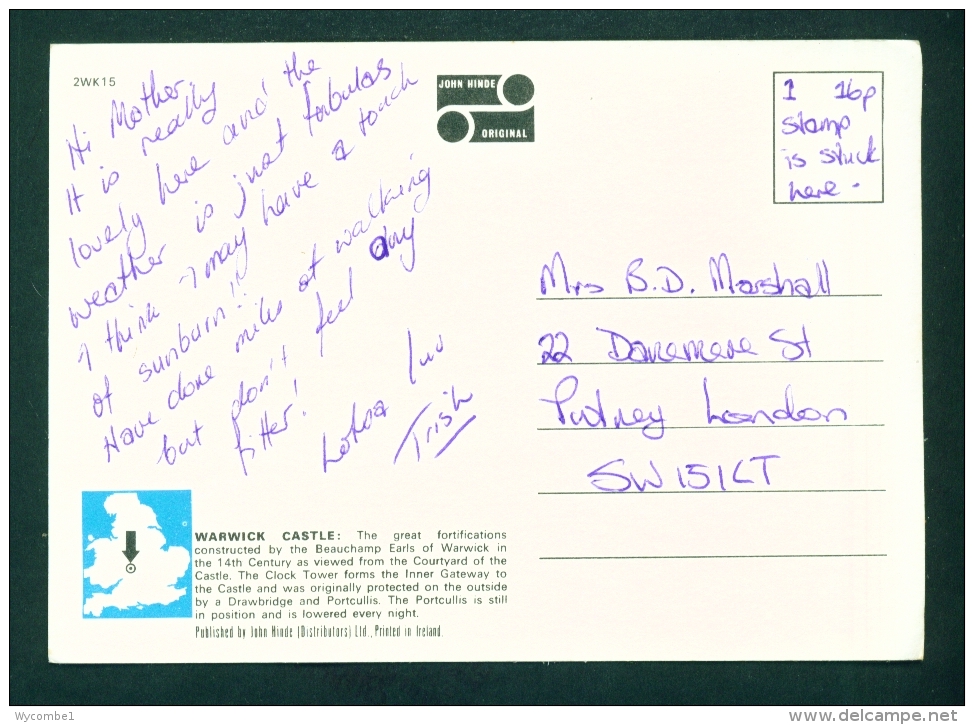 2WK15
Hi Mother,
It is really
lovely here and the
weather is just fabulas
I think I may have a touch
of sunburn!!!
Have done miles of walking
but don't feel any
fitter!
Lotsa luv
Trish
JOHN HINDE
ORIGINAL
1 16p
stamp
is stuck
here.
Mrs B.D. Marshall
22 Danemere St
Putney London
SW15 1LT
WARWICK CASTLE: The great fortifications
constructed by the Beauchamp Earls of Warwick in
the 14th Century as viewed from the Courtyard of the
Castle. The Clock Tower forms the Inner Gateway to
the Castle and was originally protected on the outside
by a Drawbridge and Portcullis. The Portcullis is still
in position and is lowered every night.
Published by John Hinde (Distributors) Ltd., Printed in Ireland.
Wycombe1
www.delcampe.net